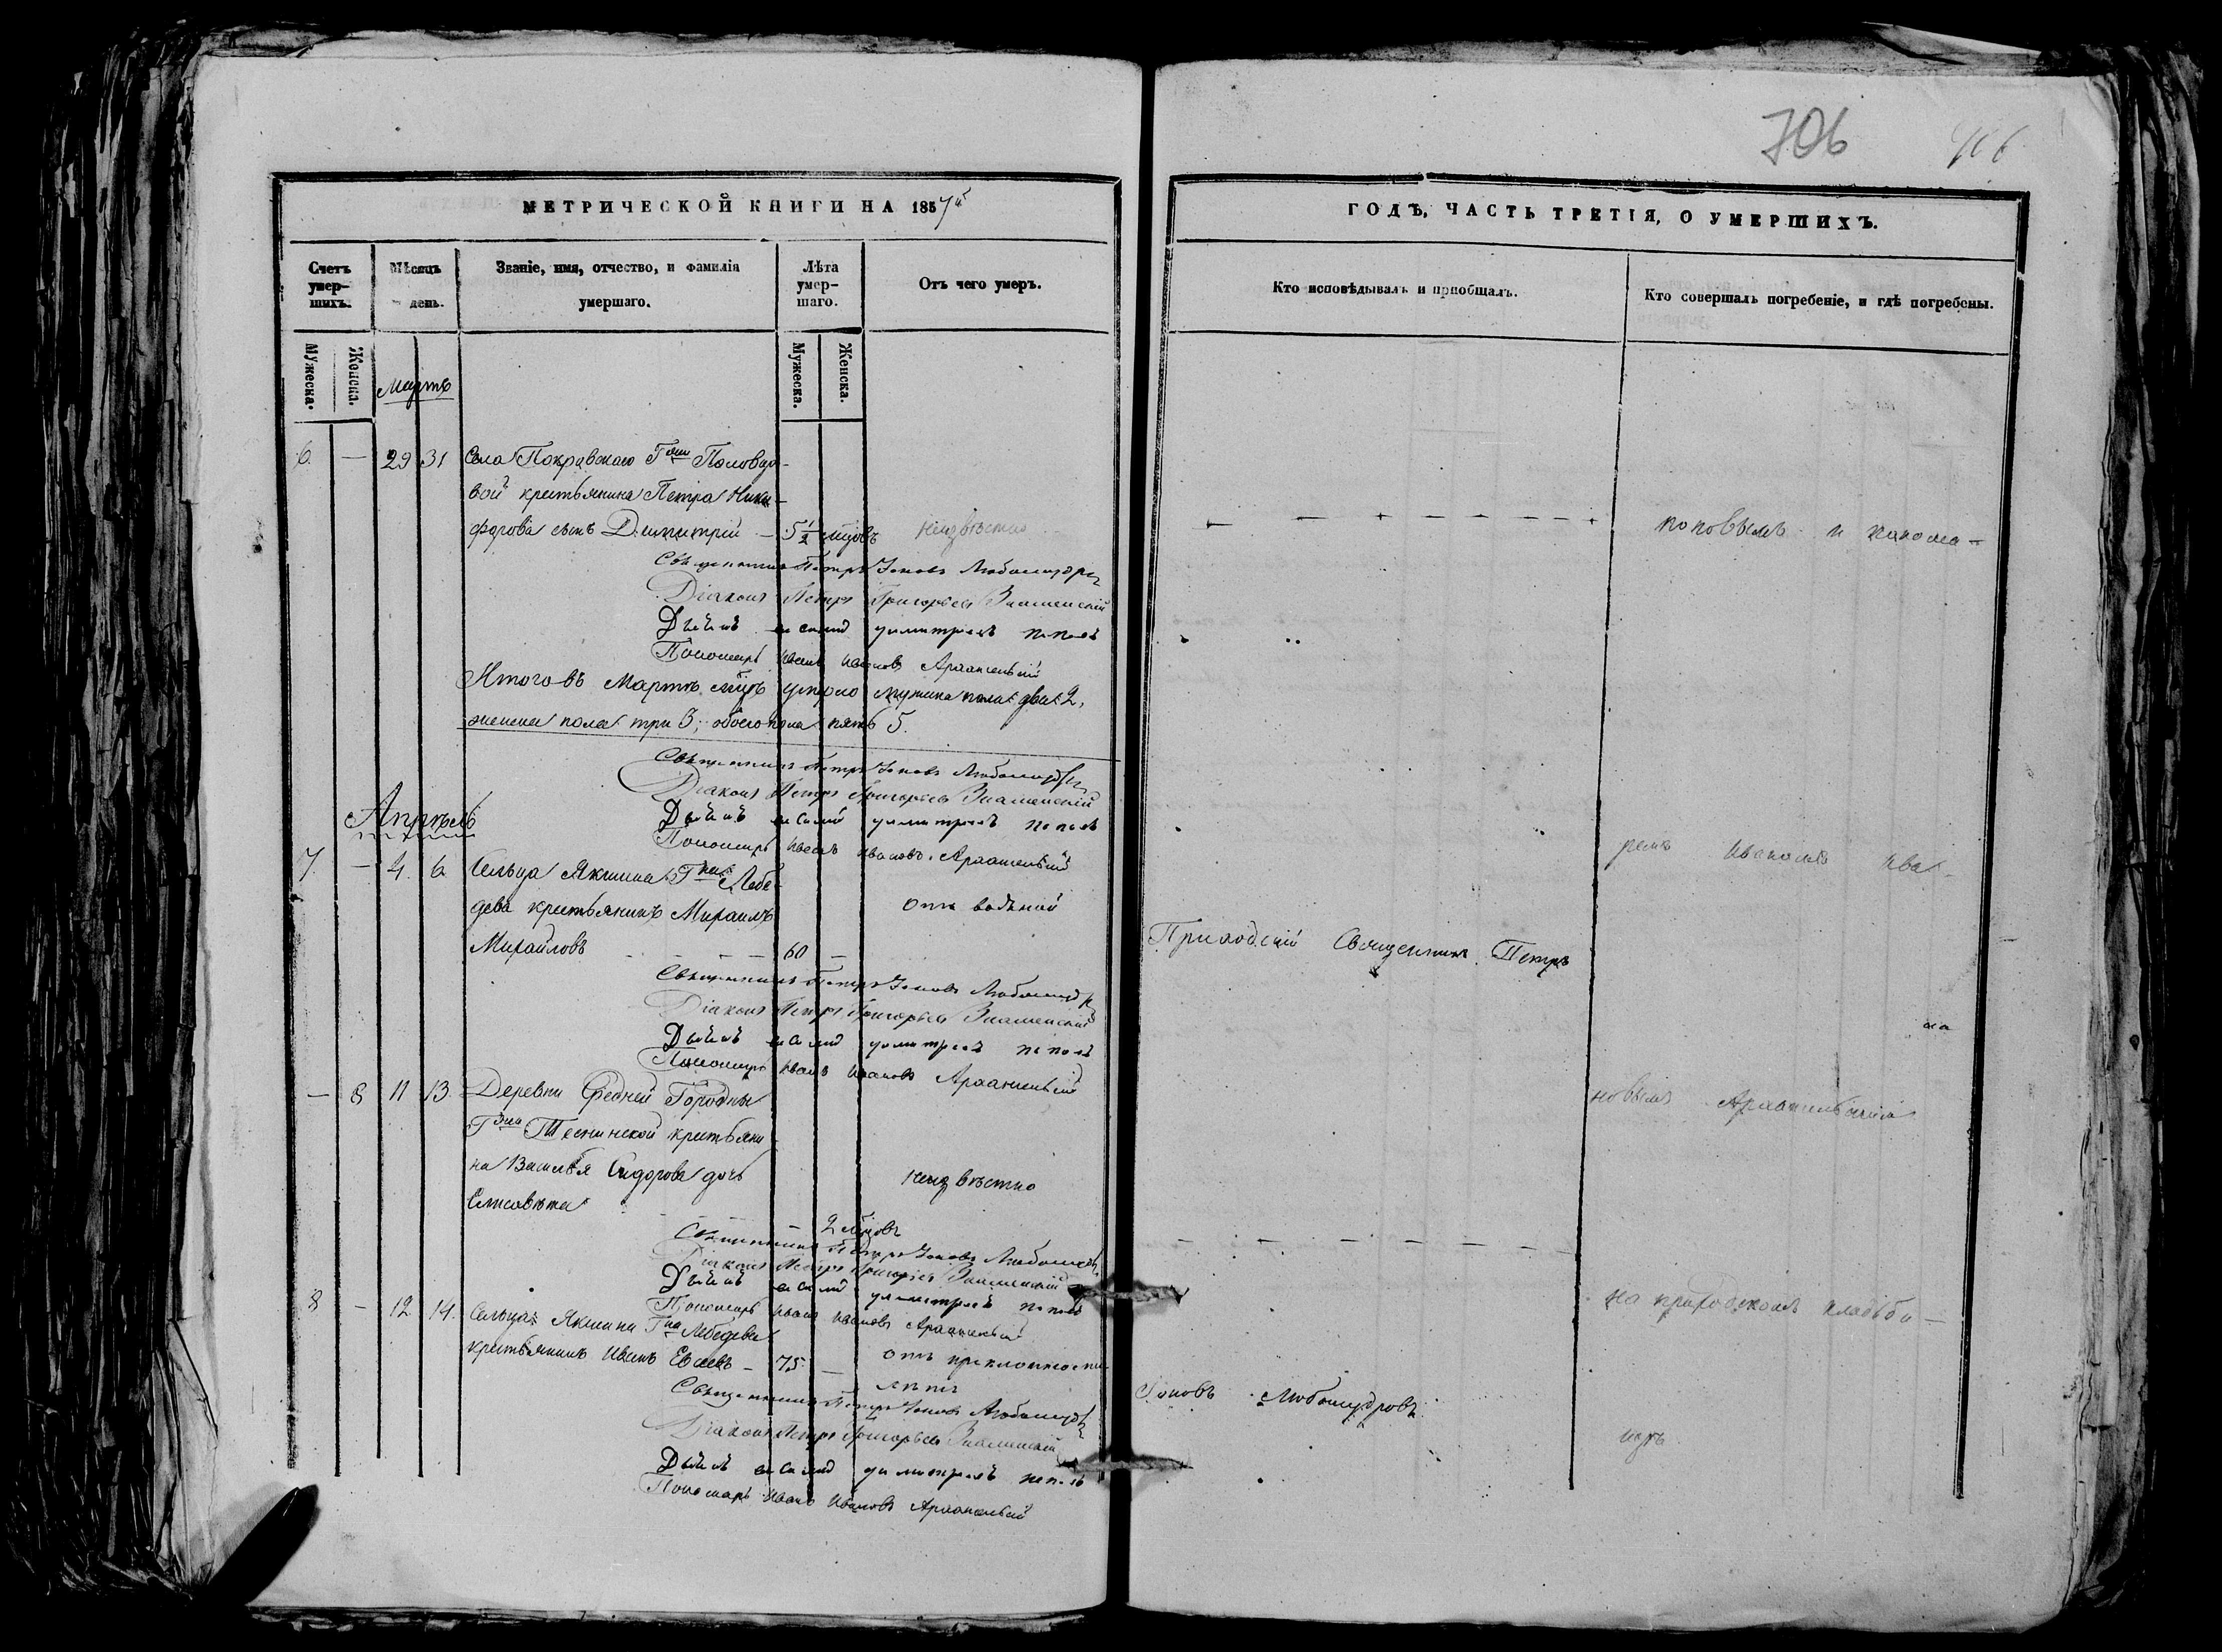 706
МЕТРИЧЕСКОЙ КНИГИ НА 1857й
ГОДЪ, ЧАСТЬ ТРЕТІЯ, О УМЕРШИХЪ.
Счетъ умер-шихъ.
Мѣсяцъ день.
Званіе, имя, отчество, и фамилія
умершаго.
Лѣта умер-шаго.
Отъ чего умеръ.
Кто исповѣдывалъ и пріобщалъ.
Кто совершалъ погребеніе, и гдѣ погребены.
Мужеска.
Женска.
Мужеска.
Женска.
Мартъ
6. — 29 31 Села Покравскаго Гжи
вой крестьянина Петра Ники-
форова сынъ Димитрій — 5 1/2 мцовъ неизвѣстно
Священникъ Петръ Іоновъ Любомудровъ
Діаконъ Петръ Григорьевъ Знаменскій
Дьячекъ димитріевъ поповъ
Пономарь Иванъ Ивановъ Архангельскій
Итого въ Мартѣ мцѣ умерло мужеска пола два 2,
женска пола три 3; обоего пола пять 5.
Священникъ Петръ Іоновъ Любомудровъ
Діаконъ Петръ Григорьевъ Знаменскій
Дьячекъ димитріевъ поповъ
Пономарь Иванъ Ивановъ Архангельскій
Апрѣль
7. — 4. 6. Сельца Якшина Гна Лебе-
дева крестьянинъ Михаилъ отъ водяной
Михайловъ — — — 60 —
Священникъ Петръ Іоновъ Любомудровъ
Діаконъ Петръ Григорьевъ Знаменскій
Дьячекъ димитріевъ поповъ
Пономарь Иванъ Ивановъ Архангельскій
— 8 11 13. Деревни Средней Городни
крестьяни-
на Василья Сидорова дочь неизвѣстно
Елисавета
— 2 мцовъ
Священникъ Петръ Іоновъ Любомудровъ
Діаконъ Петръ Григорьевъ Знаменскій
Дьячекъ димитріевъ поповъ
Пономарь Иванъ Ивановъ Архангельскій
8 — 12 14. Сельца Якшина Гна Лебедева
крестьянинъ Иванъ Евсеевъ — 75. — отъ преклонности
лѣтъ
Священникъ Петръ Іоновъ Любомудровъ
Діаконъ Петръ Григорьевъ Знаменскій
Дьячекъ димитріевъ поповъ
Пономарь Иванъ Ивановъ Архангельскій
поповымъ и понома-
ремъ Иваномъ Ива-
Приходскій Священникъ Петръ
новымъ Архангельскимъ
на
на приходскомъ кладби-
Іоновъ Любомудровъ